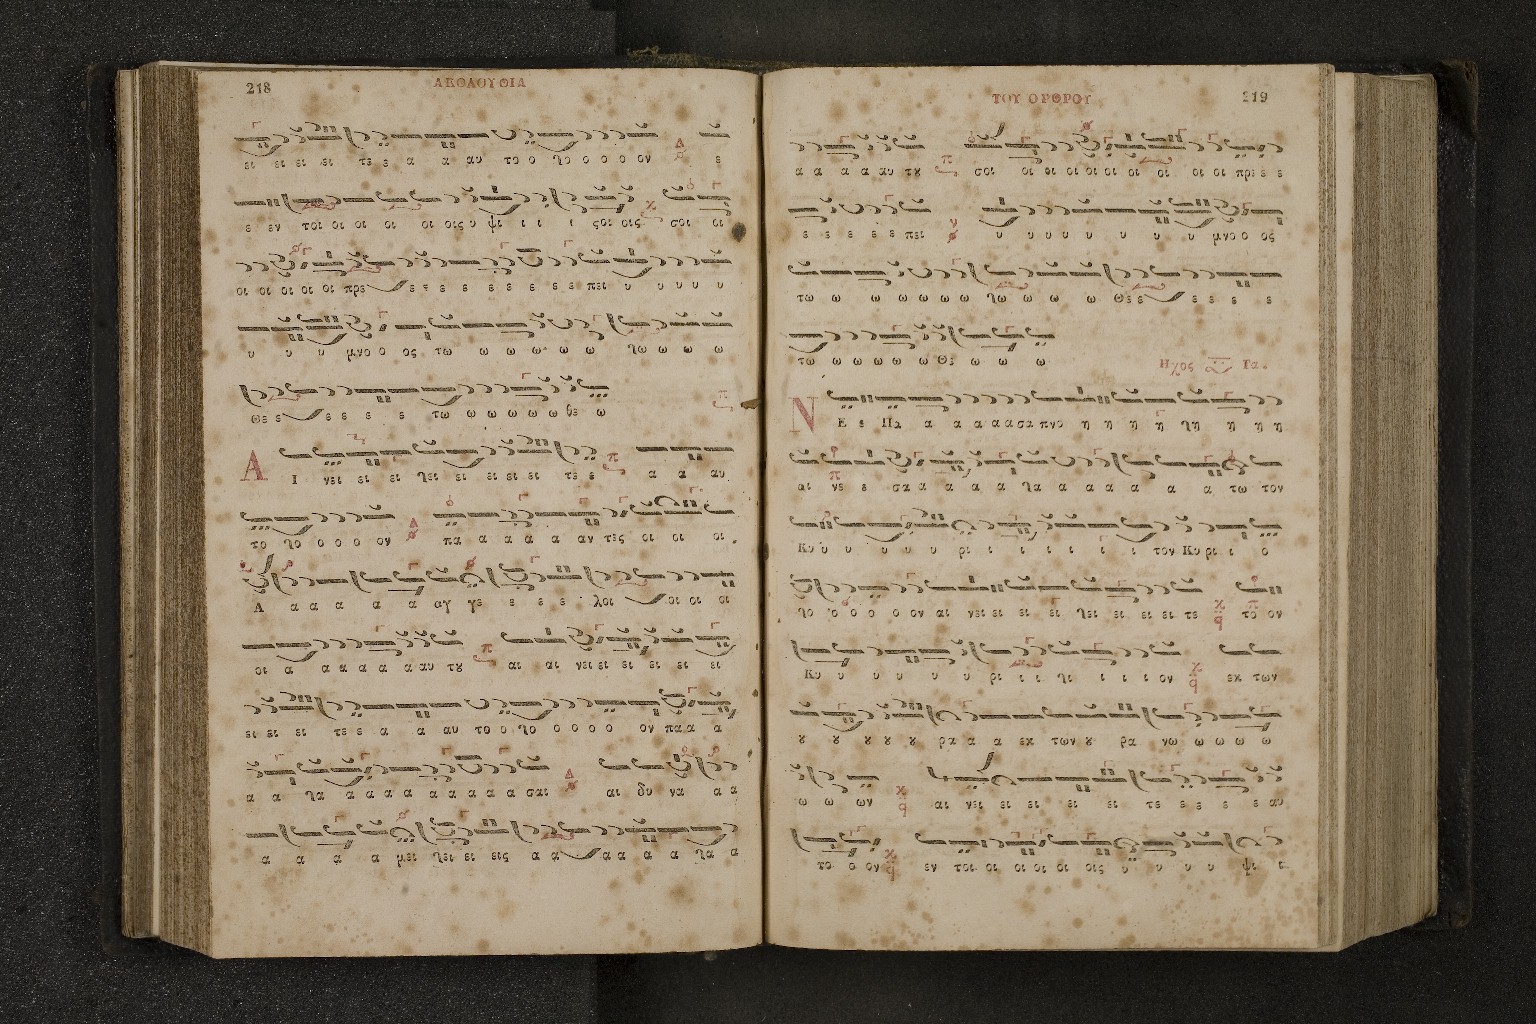 218
ΑΚΟΛΟΥΘΙΑ
ει ει ει ει τε ε α α αυ το ο λο ο ο ο ον ε
ε εν τοι οι οι οι οι οις υ ψι ι ι ι ςοι οις σοι οι
οι οι οι οι οι πρε ε ε ε ε ε ε ε ε πει υ υ υ υ
υ υ υ μνο ο ος τω ω ω ω ω ω λω ω ω ω
Θε ε ε ε ε ε τω ω ω ω ω ω θε ω
Α Ι νει ει ει ει λει ει ει ει ει τε ε α α αυ
το λο ο ο ο ον πα α α α α αν τες οι οι οι
Α α α α α α αγ γε ε ε ε ε λοι οι οι οι
οι α α α α α α αυ τȣ αι αι νει ει ει ει ει ει
ει ει ει τε ε α α αυ το ο λο ο ο ο ο ον πα α α
α α λα α α α α α α α α α σαι αι δυ να α α
α α α α μει λει ει εις α α α α α α λα α
219
ΤΟΥ ΟΡΘΡΟΥ
α α α α αυ τȣ σοι οι οι οι οι οι οι οι οι οι πρε ε ε
ε ε ε ε ε πει υ υ υ υ υ υ υ υ μνο ο ος
τω ω ω ω ω ω ω λω ω ω ω Θε ε ε ε ε ε
τω ω ω ω ω ω Θε ω ω ω
Ηχος Γα.
Ν Ε ε Πα α α α α α σα πνο η η η η λη η η η
αι νε ε σα α α α α λα α α α α α α τω τον
Κυ υ υ υ υ υ ρι ι ι ι ι ι ι τον Κυ ρι ι ο
λο ο ο ο ο ον αι νει ει ει ει ει λει ει ει ει τε το ον
Κυ υ υ υ υ υ υ ρι ι ι λι ι ι ι ον εκ των
ȣ ȣ ȣ ȣ ȣ ρα α α εκ των ȣ ρα νω ω ω ω ω
ω ω ων αι νει ει ει ει ει τε ε ε ε ε ε αυ
το ο ον εν τοι οι οι οι οι οι οις υ υ υ υ ψι ι